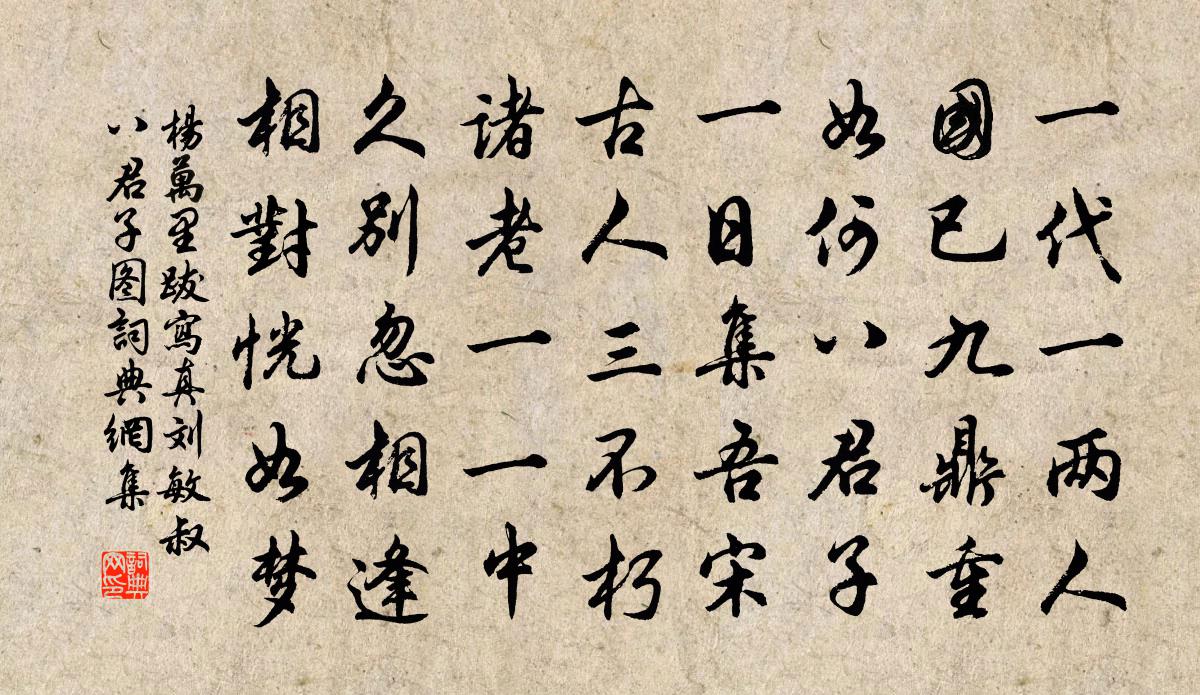 一代一两人
國已九鼎重
如何八君子
一日集吾宋
古人三不朽
诸老一一中
久别忽相逢
相對恍如梦
楊萬里跋寫真刘敏叔
八君子图詞典網集
詞典网印